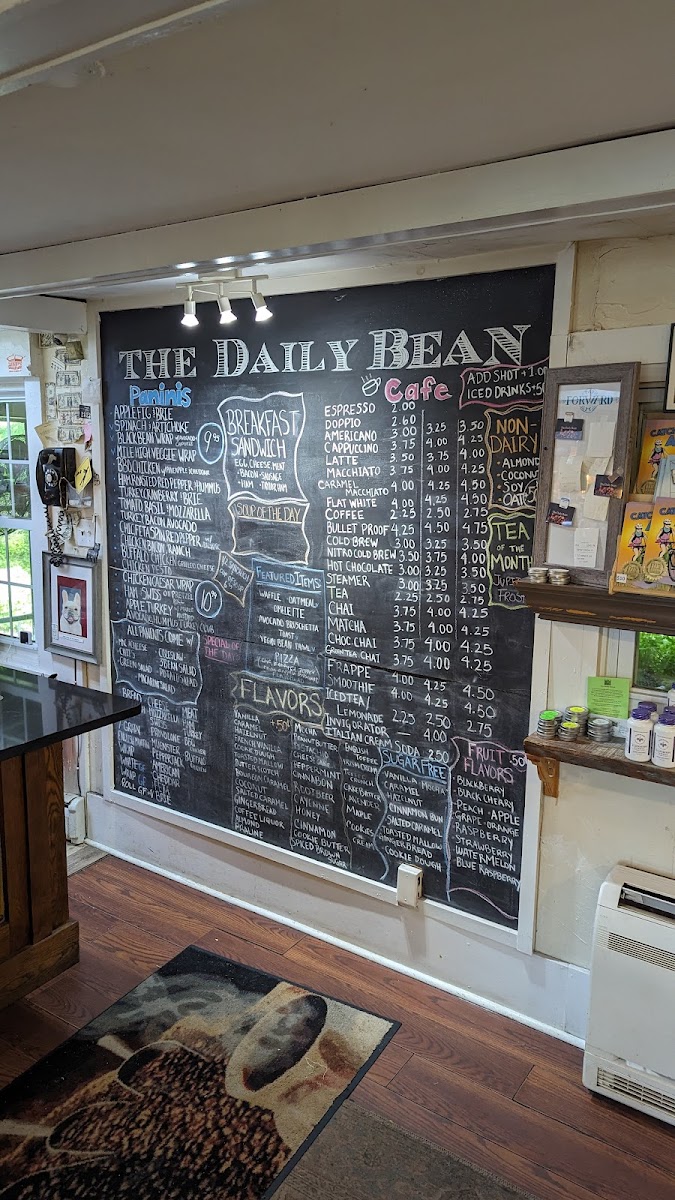 THE DAILY BEAN
Paninis
APPLE FIG & BRIE
SPINACH & ARTICHOKE
BLACK BEAN WRAP
MILE HIGH VEGGIE WRAP
BBQ CHICKEN
HAM ROASTED RED PEPPER HUMMUS
TURKEY CRANBERRY & BRIE
TOMATO BASIL MOZZARELLA
TURKEY BACON AVOCADO
CHICKEN BACON RANCH
BUFFALO CHICKEN GRILLED CHEESE
CHICKEN PESTO
CHICKEN CAESAR WRAP
HAM & SWISS ON PRETZEL
APPLE TURKEY
AVOCADO HUMMUS TURKEY
9.95
10.95
ALL PANINIS COME W/
CHIPS
COLESLAW
GREEN SALAD
POTATO SALAD
MACARONI SALAD
BREAD
CHEESE
MEAT
MOZZARELLA
PROVOLONE
MUENSTER
PEPPERJACK
AMERICAN
CHEDDAR
BRIE
HAM
TURKEY
BBQ
BUFFALO
BREAKFAST
SANDWICH
EGG, CHEESE, MEAT
• BACON • SAUSAGE
• HAM
SOUP OF THE DAY
FEATURED ITEMS
WAFFLE • OATMEAL
OMELETTE
AVOCADO BRUSCHETTA
TOAST
VEGAN BEAN TAMALE
PIZZA
SPECIAL OF
THE DAY
Cafe
ESPRESSO 2.00
DOPPIO 2.60
AMERICANO 3.00 3.25 3.50
CAPPUCCINO 3.50 4.00 4.25
LATTE 3.50 3.75 4.00
MACCHIATO 3.75 4.00 4.25
CARAMEL
MACCHIATO 4.00 4.25 4.50
FLAT WHITE 4.00
COFFEE 2.25 2.50 2.75
BULLET PROOF 4.25 4.50 4.75
COLD BREW 3.00 3.25 3.50
NITRO COLD BREW 3.50 3.75 4.00
HOT CHOCOLATE 3.00 3.25 3.50
STEAMER 3.00 3.25 3.50
TEA 2.25 2.50 2.75
CHAI 3.75 4.00 4.25
MATCHA 3.75 4.00 4.25
CHOC CHAI 3.75 4.00 4.25
GREEN TEA CHAI 3.75 4.00 4.25
FRAPPE 4.00 4.25 4.50
SMOOTHIE 4.00 4.25 4.50
ICED TEA/
LEMONADE 2.25 2.50 2.75
INVIGORATOR — 4.00
ITALIAN CREAM SODA 2.50
ADD SHOT +1.00
ICED DRINKS +.50
NON-
DAIRY
• ALMOND
COCONUT
SOY
OAT
TEA
OF THE
MONTH
FLAVORS
+.50¢
VANILLA
CARAMEL
HAZELNUT
FRENCH VANILLA
COOKIE DOUGH
TOASTED MALLOW
BUTTERSCOTCH
IRISH CREAM
COCONUT
SALTED CARAMEL
GINGERBREAD
COFFEE LIQUOR
ALMOND
PRALINE
MOCHA
PEANUT BUTTER
PEPPERMINT
CINNAMON BUN
ROOTBEER
CAYENNE
HONEY
CINNAMON
COOKIE BUTTER
SPICED BROWN
SUGAR
ENGLISH
TOFFEE
CAKE BATTER
LAVENDER
MAPLE
COOKIES
CREAM
SUGAR FREE
VANILLA MOCHA
CARAMEL
HAZELNUT
CINNAMON BUN
SALTED CARAMEL
TOASTED MALLOW
GINGERBREAD
COOKIE DOUGH
FRUIT .50
FLAVORS
BLACKBERRY
BLACK CHERRY
PEACH • APPLE
GRAPE • ORANGE
RASPBERRY
STRAWBERRY
WATERMELON
BLUE RASPBERRY
FORWARD